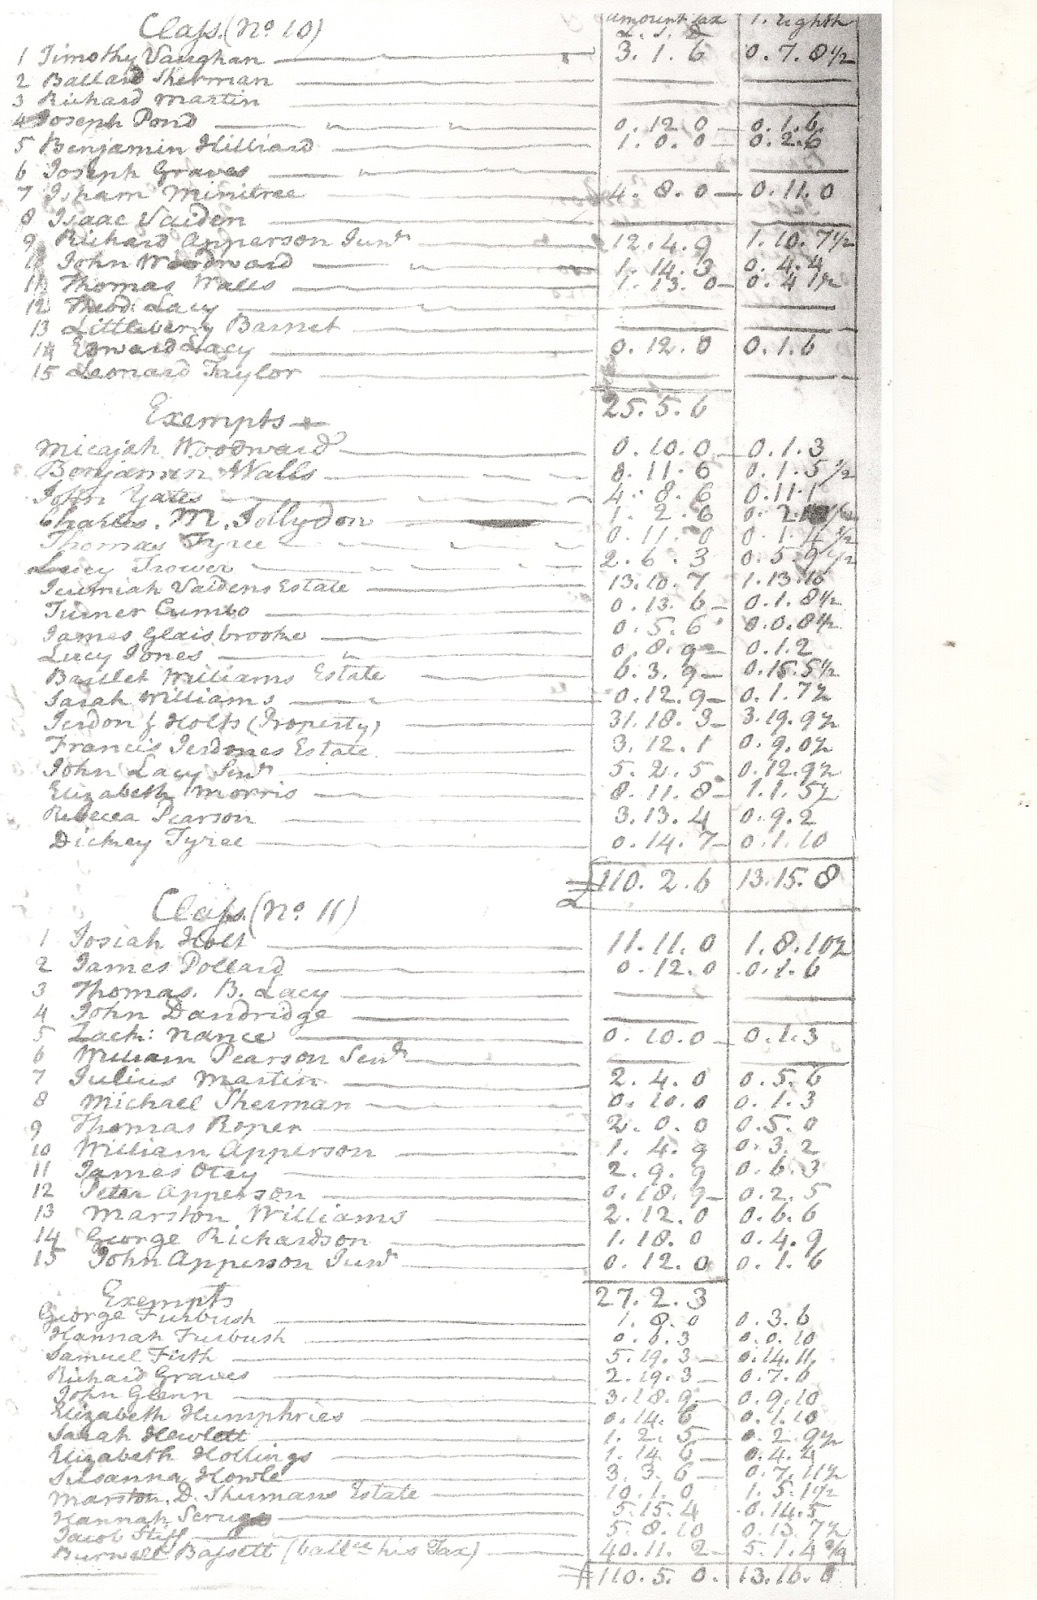 Class (No. 10) amount tax 1. Eighth
£. S. D
1 Timothy Vaughan 3. 1. 6 0. 7. 8 1/2
2 Ballard Sherman
3 Richard Martin
4 Joseph Pond 0. 12. 0 0. 1. 6
5 Benjamin Hilliard 1. 0. 0 0. 2. 6
6 Joseph Graves
7 Isham Minitree 4. 8. 0 0. 11. 0
8 Isaac Vaiden
9 Richard Apperson Junr 12. 4. 9 1. 10. 7 1/2
10 John Woodward 1. 14. 3 0. 4. 4
11 Thomas Walls 1. 13. 0 0. 4 1/2
12 Theod: Lacy
13 Littleberry Barnet
14 Edward Lacy 0. 12. 0 0. 1. 6
15 Leonard Taylor
25. 5. 6
Exempts
Micajah Woodward 0. 10. 0 0. 1. 3
Benjamin Walls 0. 11. 6 0. 1. 5 1/2
John Yates 4. 8. 6 0. 11. 1
Charles. M. Jollydon 1. 2. 6 0. 2.
Thomas Tyree 0. 11. 0 0. 1. 4 1/2
Lucy Trower 2. 6. 3 0. 5. 9 1/2
Jeremiah Vaidens Estate 13. 10. 7 1. 13. 10
Turner Cumbo 0. 13. 6 0. 1. 8 1/2
James Glaisbrooke 0. 5. 6 0. 0. 8 1/2
Lucy Jones 0. 8. 9 0. 1. 2
Bartlet Williams Estate 6. 3. 9 0. 15. 5 1/2
Sarah Williams 0. 12. 9 0. 1. 7 1/2
Jerdon & Holts (Property) 31. 18. 3 3. 19. 9 1/2
Francis Jerdones Estate 3. 12. 1 0. 9. 0 1/2
John Lacy Senr 5. 2. 5 0. 12. 9 1/2
Elizabeth Morris 8. 11. 8 1. 1. 5 1/2
Rebecca Pearson 3. 13. 4 0. 9. 2
Dickey Tyree 0. 14. 7 0. 1. 10
£110. 2. 6 13. 15. 8
Class (No. 11)
1 Josiah Holt 11. 11. 0 1. 8. 10 1/2
2 James Pollard 0. 12. 0 0. 1. 6
3 Thomas. B. Lacy
4 John Dandridge
5 Zach: Nance 0. 10. 0 0. 1. 3
6 William Pearson Senr
7 Julius Martin 2. 4. 0 0. 5. 6
8 Michael Sherman 0. 10. 0 0. 1. 3
9 Thomas Roper 2. 0. 0 0. 5. 0
10 William Apperson 1. 4. 9 0. 3. 2
11 James Otey 2. 9. 9 0. 6. 3
12 Peter Apperson 0. 18. 9 0. 2. 5
13 Marston Williams 2. 12. 0 0. 6. 6
14 George Richardson 1. 18. 0 0. 4. 9
15 John Apperson Junr 0. 12. 0 0. 1. 6
27. 2. 3
Exempts
George Furbush 1. 8. 0 0. 3. 6
Hannah Furbush 0. 6. 3 0. 0. 10
Samuel Firth 5. 19. 3 0. 14. 11
Richard Graves 2. 19. 3 0. 7. 6
John Glenn 3. 18. 9 0. 9. 10
Elizabeth Humphries 0. 14. 6 0. 1. 10
Sarah Hewlett 1. 2. 5 0. 2. 9 1/2
Elizabeth Hollings 1. 14. 6 0. 4. 4
Susanna Howle 3. 3. 6 0. 7. 11 1/2
Marston. D. Shermans Estate 10. 1. 0 1. 5. 1 1/2
Hannah Scrugs 5. 15. 4 0. 14. 5
Jacob Stiff 5. 8. 10 0. 13. 7 1/2
Burwell Bassett (ballce his Tax) 40. 11. 2 5. 1. 4
£110. 5. 0. 13. 16. 0